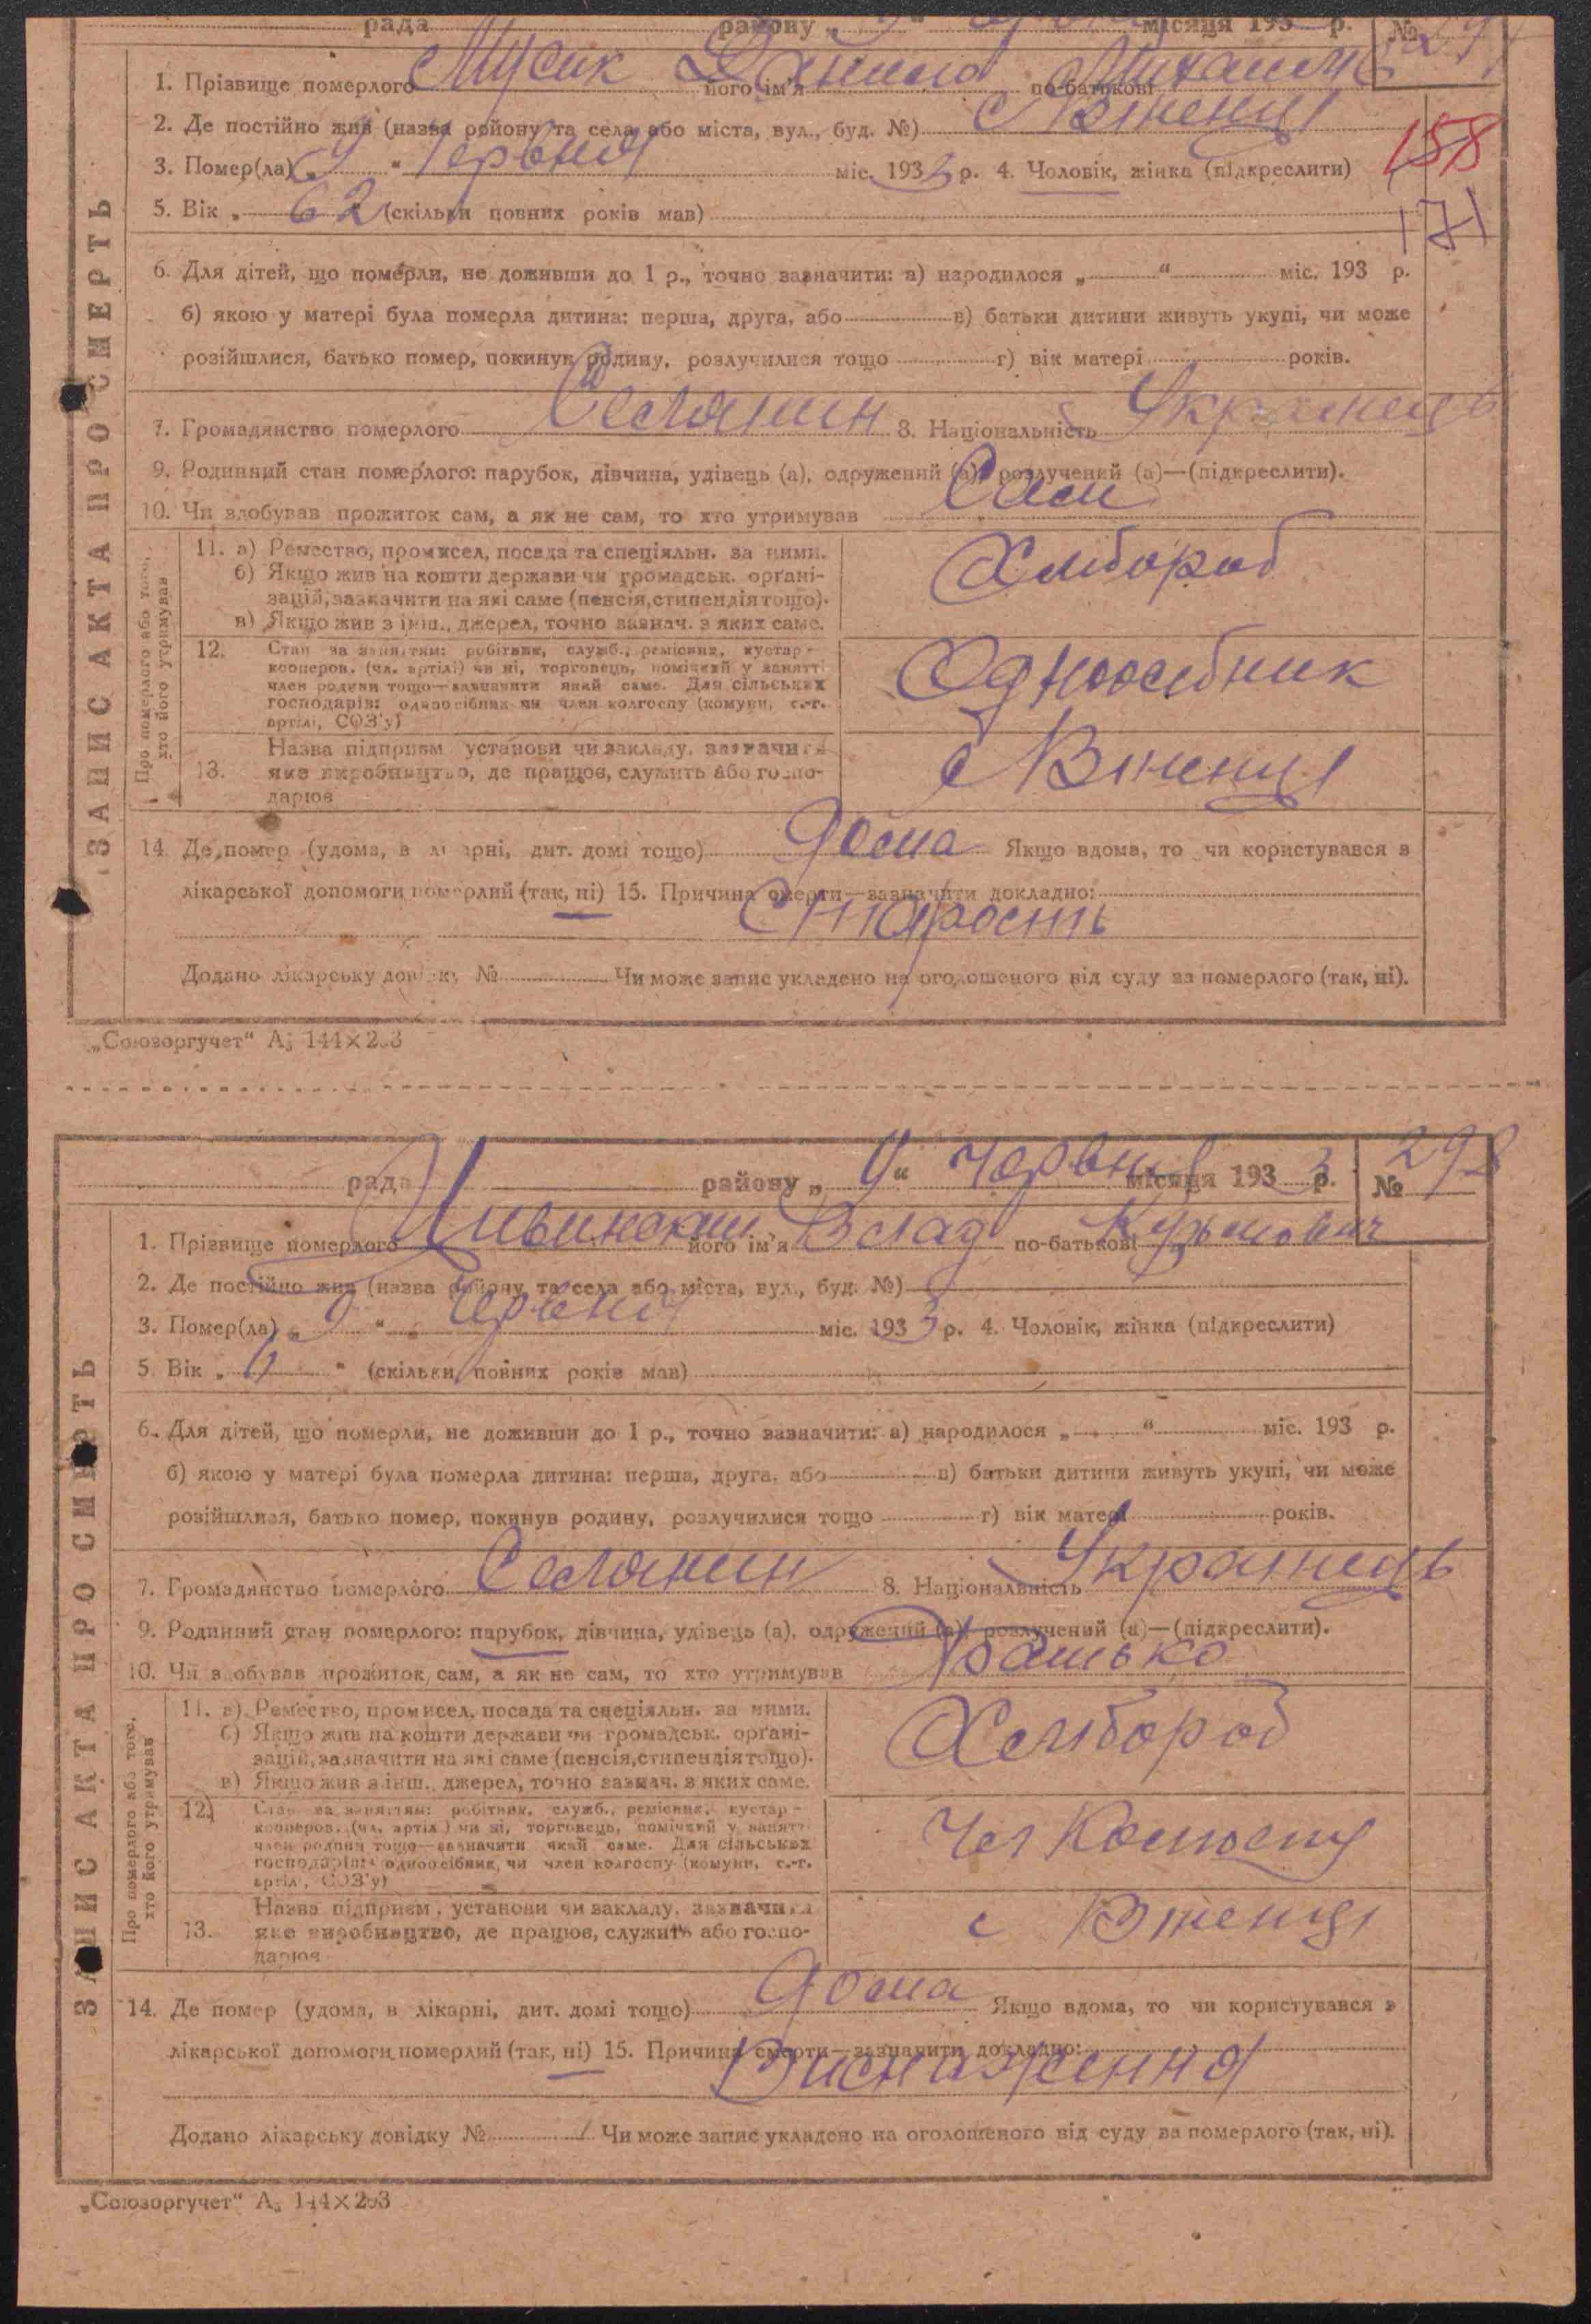 рада району „ 9 “ місяця 193 р. № 297
1. Прізвище померлого Мусик його ім'я Данило по-батькові
2. Де постійно жив (назва району та села або міста, вул., буд. №) с Втенці
158
3. Помер(ла) „ 9 “ Червня міс. 1933 р. 4. Чоловік, жінка (підкреслити)
5. Вік „ 62 (скільки повних років мав)
171
6. Для дітей, що померли, не доживши до 1 р., точно зазначити: а) народилося „ “ міс. 193 р.
б) якою у матері була померла дитина: перша, друга, або в) батьки дитини живуть укупі, чи може
розійшлися, батько помер, покинув родину, розлучилися тощо г) вік матері років.
7. Громадянство померлого Селянин 8. Національність Українець
9. Родинний стан померлого: парубок, дівчина, удівець (а), одружений (а), розлучений (а)—(підкреслити).
10. Чи здобував прожиток сам, а як не сам, то хто утримував Сам
ЗАПИС АКТА ПРО СМЕРТЬ
Про померлого або того, хто його утримував
11. а) Ремество, промисел, посада та спеціяльн. за ними.
б) Якщо жив на кошти держави чи громадськ. органі-
зацій, зазначити на які саме (пенсія, стипендія тощо).
в) Якщо жив з інш., джерел, точно зазнач. з яких саме.
Хлібороб
12. Стан за заняттям: робітник, служб., ремісник, кустар-
кооперов. (чл. артілі) чи ні, торговець, помічний у занятті
член родини тощо—зазначити який саме. Для сільських
господарів: одноосібник чи член колгоспу (комуни, с.-г.
артілі, СОЗ'у)
Одноосібник
13. Назва підприєм. установи чи закладу, зазначити
яке виробництво, де працює, служить або госпо-
дарює
с Втенці
14. Де помер (удома, в лікарні, дит. домі тощо) дома Якщо вдома, то чи користувався з
лікарської допомоги померлий (так, ні) 15. Причина смерти—зазначити докладно:
Старость
Додано лікарську довідку № Чи може запис укладено на оголошеного від суду за померлого (так, ні).
„Союзоргучет“ А5 144×203
рада району „ 9 “ Червня місяця 1933 р. № 298
1. Прізвище померлого його ім'я Влад по-батькові Кузьмович
2. Де постійно жив (назва району та села або міста, вул., буд. №)
3. Помер(ла) „ 9 “ Червня міс. 1933 р. 4. Чоловік, жінка (підкреслити)
5. Вік „ “ (скільки повних років мав)
6. Для дітей, що померли, не доживши до 1 р., точно зазначити: а) народилося „ “ міс. 193 р.
б) якою у матері була померла дитина: перша, друга, або в) батьки дитини живуть укупі, чи може
розійшлися, батько помер, покинув родину, розлучилися тощо г) вік матері років.
7. Громадянство померлого Селянин 8. Національність Українець
9. Родинний стан померлого: парубок, дівчина, удівець (а), одружений (а), розлучений (а)—(підкреслити).
10. Чи здобував прожиток сам, а як не сам, то хто утримував батько
ЗАПИС АКТА ПРО СМЕРТЬ
Про померлого або того, хто його утримував
11. а) Ремество, промисел, посада та спеціяльн. за ними.
б) Якщо жив на кошти держави чи громадськ. органі-
зацій, зазначити на які саме (пенсія, стипендія тощо).
в) Якщо жив з інш., джерел, точно зазнач. з яких саме.
Хлібороб
12. Стан за заняттям: робітник, служб., ремісник, кустар-
кооперов. (чл. артілі) чи ні, торговець, помічний у занятті
член родини тощо—зазначити який саме. Для сільських
господарів: одноосібник, чи член колгоспу (комуни, с.-г.
артілі, СОЗ'у)
Чл Колгоспу
13. Назва підприєм., установи чи закладу, зазначити
яке виробництво, де працює, служить або госпо-
дарює
с Втенці
14. Де помер (удома, в лікарні, дит. домі тощо) дома Якщо вдома, то чи користувався з
лікарської допомоги померлий (так, ні) 15. Причина смерти—зазначити докладно:
Виснаження
Додано лікарську довідку № Чи може запис укладено на оголошеного від суду за померлого (так, ні).
„Союзоргучет“ А5 144×203